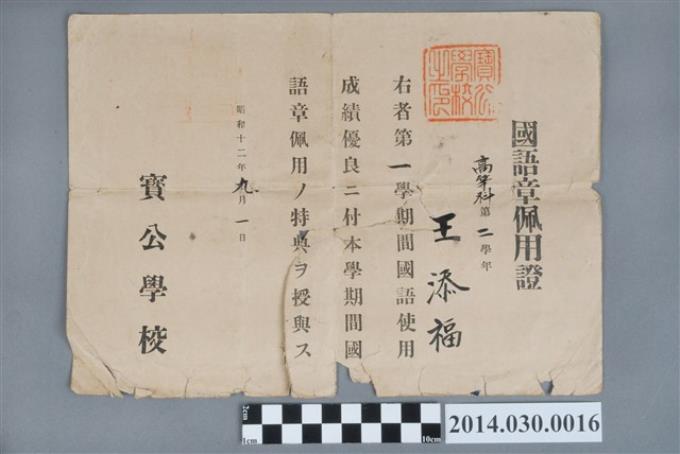 國語章佩用證
高等科第二學年
王添福
右者第一學期間國語使用
成績優良ニ付本學期間國
語章佩用ノ特典ヲ授與ス
昭和十二年九月一日
寶公學校
寶公學校之印
2cm
1cm
10cm
2014.030.0016